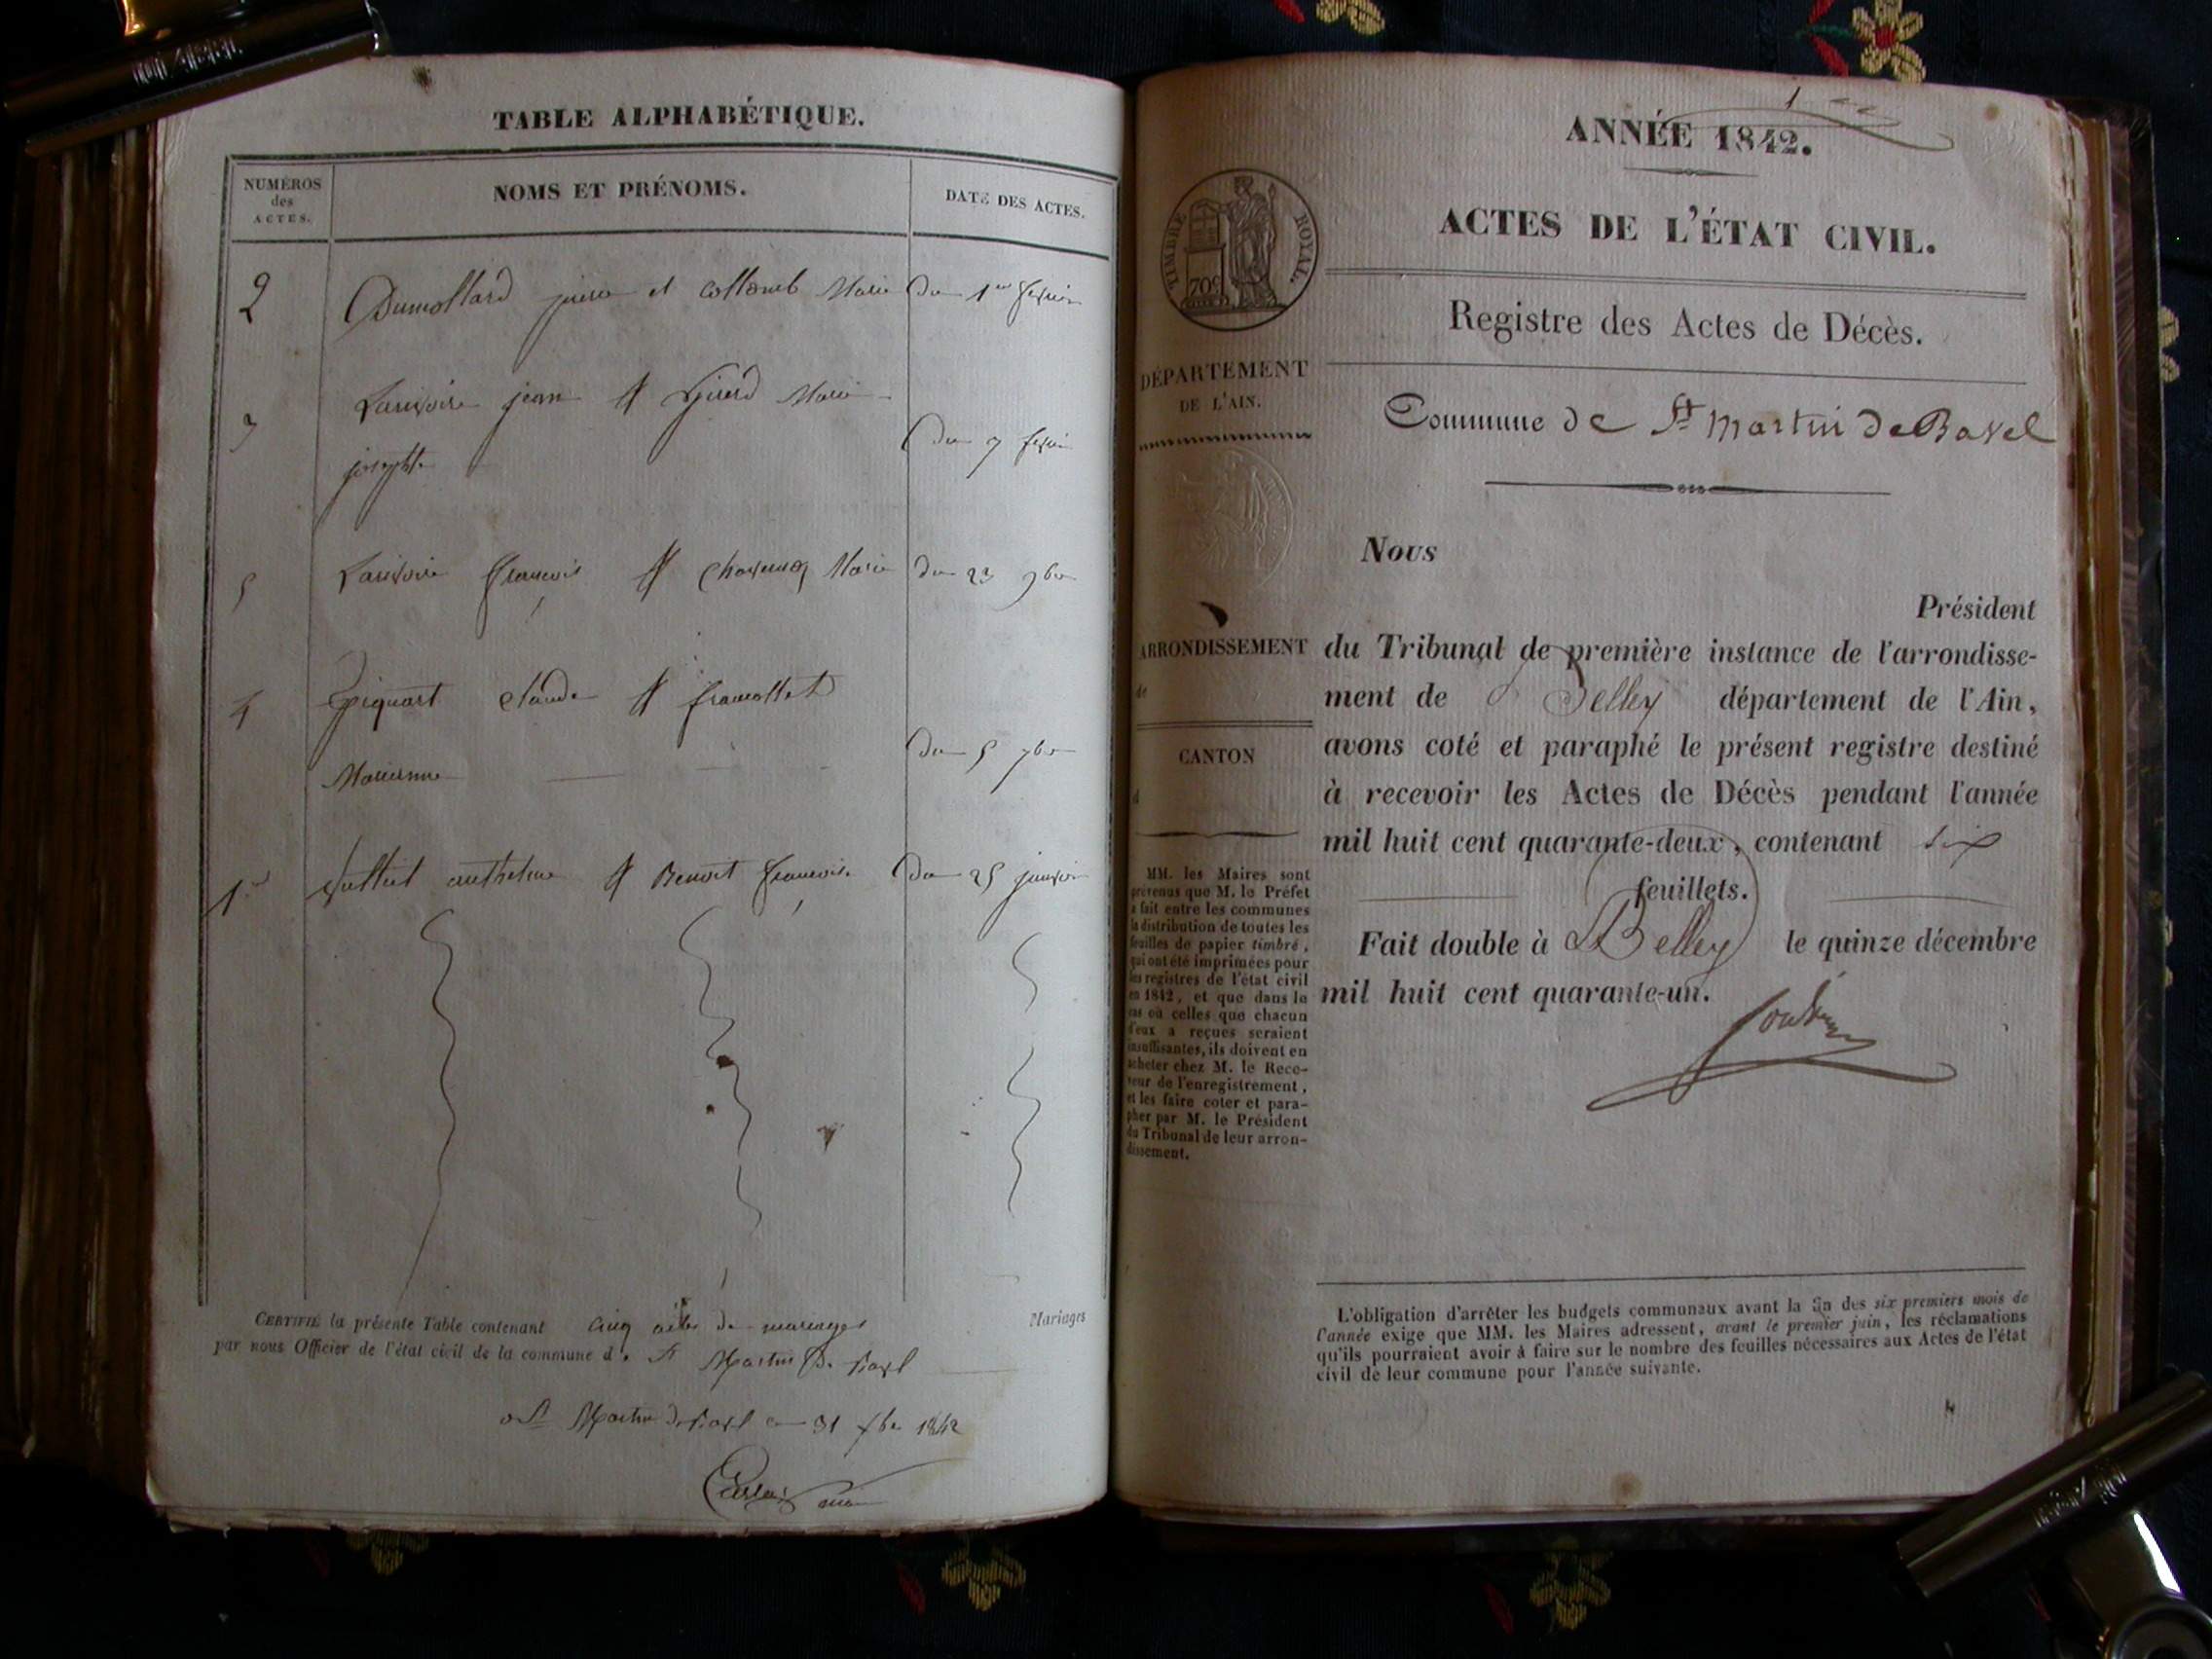 TABLE ALPHABÉTIQUE.
NUMÉROS
des
ACTES.
NOMS ET PRÉNOMS.
DATE DES ACTES.
2 Dumollard et collomb Marie Du 1er
3 jean et Marie
josephte Du 7
5 françois et Marie Du 23 9bre
4 piquart claude et
Marianne Du 5 7bre
1er anthelme et Benoit françoise Du 25 janvier
CERTIFIÉ la présente Table contenant cinq actes de mariages Mariages
par nous Officier de l'état civil de la commune de St Martin De Bavel
a St Martin de Bavel 31 1842
ANNÉE 1842.
ACTES DE L'ÉTAT CIVIL.
TIMBRE ROYAL.
70c
Registre des Actes de Décès.
DÉPARTEMENT
DE L'AIN.
Commune de St Martin de Bavel
Nous
Président
ARRONDISSEMENT
de
CANTON
d
du Tribunal de première instance de l'arrondisse-
ment de Belley département de l'Ain,
avons coté et paraphé le présent registre destiné
à recevoir les Actes de Décès pendant l'année
mil huit cent quarante-deux, contenant six
feuillets.
Fait double à Belley le quinze décembre
mil huit cent quarante-un.
MM. les Maires sont
prévenus que M. le Préfet
a fait entre les communes
la distribution de toutes les
feuilles de papier timbré,
qui ont été imprimées pour
les registres de l'état civil
en 1842, et que dans le
cas où celles que chacun
d'eux a reçues seraient
insuffisantes, ils doivent en
acheter chez M. le Rece-
veur de l'enregistrement,
et les faire coter et para-
pher par M. le Président
du Tribunal de leur arron-
dissement.
L'obligation d'arrêter les budgets communaux avant la fin des six premiers mois de
l'année exige que MM. les Maires adressent, avant le premier juin, les réclamations
qu'ils pourraient avoir à faire sur le nombre des feuilles nécessaires aux Actes de l'état
civil de leur commune pour l'année suivante.